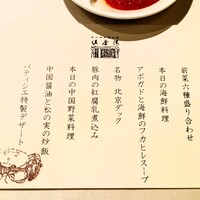 前菜六種盛り合わせ
本日の海鮮料理
アボガドと海鮮のフカヒレスープ
名物 北京ダック
豚肉の紅腐乳煮込み
本日の中国野菜料理
中国醤油と松の実の炒飯
パティシエ特製デザート